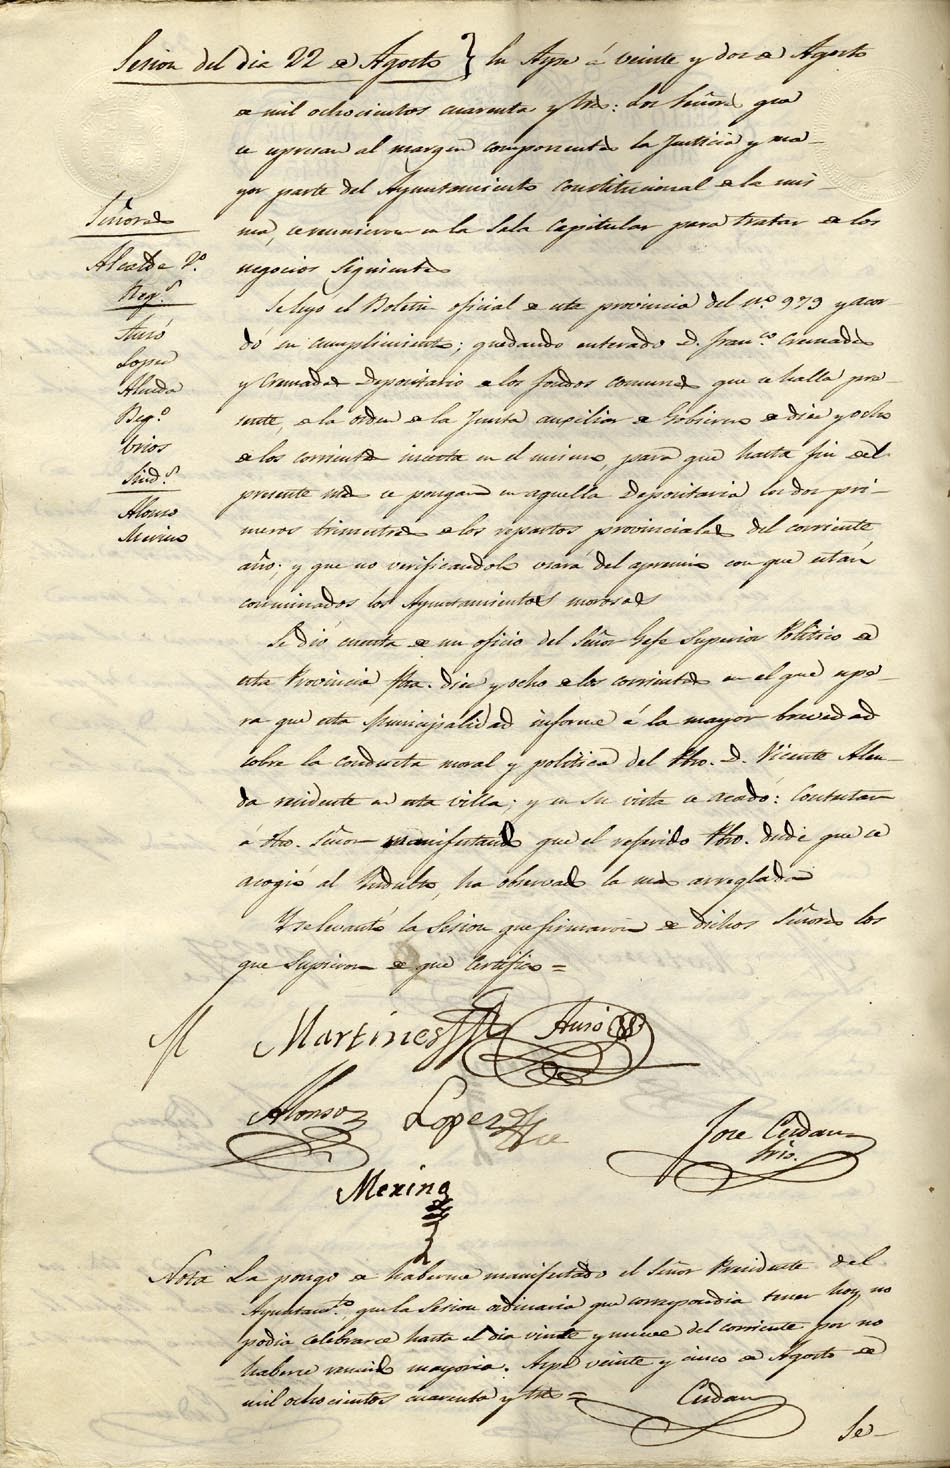 Sesion del dia 22 de Agosto } En Aspe á veinte y dos de Agosto
de mil ochocientos cuarenta y tres: los Señores que
se espresan al margen componentes la Justicia y ma-
yor parte del Ayuntamiento Constitucional de la mis-
ma, se reunieron en la Sala Capitular para tratar de los
negocios siguientes
Señores
Alcalde 2º.
Regs.
Auró
Lopez
Alzeda
Bego
Cerdan
Sinds.
Alonso
Merino
Se leyo el Boletin oficial de esta provincia del nº. 979 y acor-
dó su cumplimiento; quedando enterado D. Franco. Cremades
y Cremades Depositario de los fondos comunes que se halla pre-
sente, de la orden de la Junta auxiliar de Gobierno de diez y ocho
de los corrientes inserta en el mismo, para que hasta fin del
presente mes se pongan en aquella Depositaria los dos pri-
meros trimestres de los repartos provinciales del corriente
año; y que no verificandolo usará del apremio con que están
conminados los Ayuntamientos morosos
Se dió cuenta de un oficio del Señor Gefe Superior Politico de
esta Provincia fha. diez y ocho de los corrientes en el que espe-
ra que esta Municipalidad informe á la mayor brevedad
sobre la conducta moral y politica del Pbro. D. Vicente Alen-
da residente en esta villa; y en su vista se acordó: Contestar
á dho. Señor manifestando que el referido Pbro. desde que se
acogió al Indulto, ha observado la mas arreglada
Y se levantó la Sesion que firmaron de dichos Señores los
que Supieron de que Certifico =
M Martines Auró
Alonso Lopez Jose Cerdan
Srio.
Merino
Nota La pongo de haberme manifestado el Señor Presidente del
Ayuntamto. que la Sesion ordinaria que correspondia tener hoy, no
podia celebrarce hasta el dia veinte y nueve del corriente por no
haberse reunido mayoria. Aspe veinte y cinco de Agosto de
mil ochocientos cuarenta y tres = Cerdan
Se-